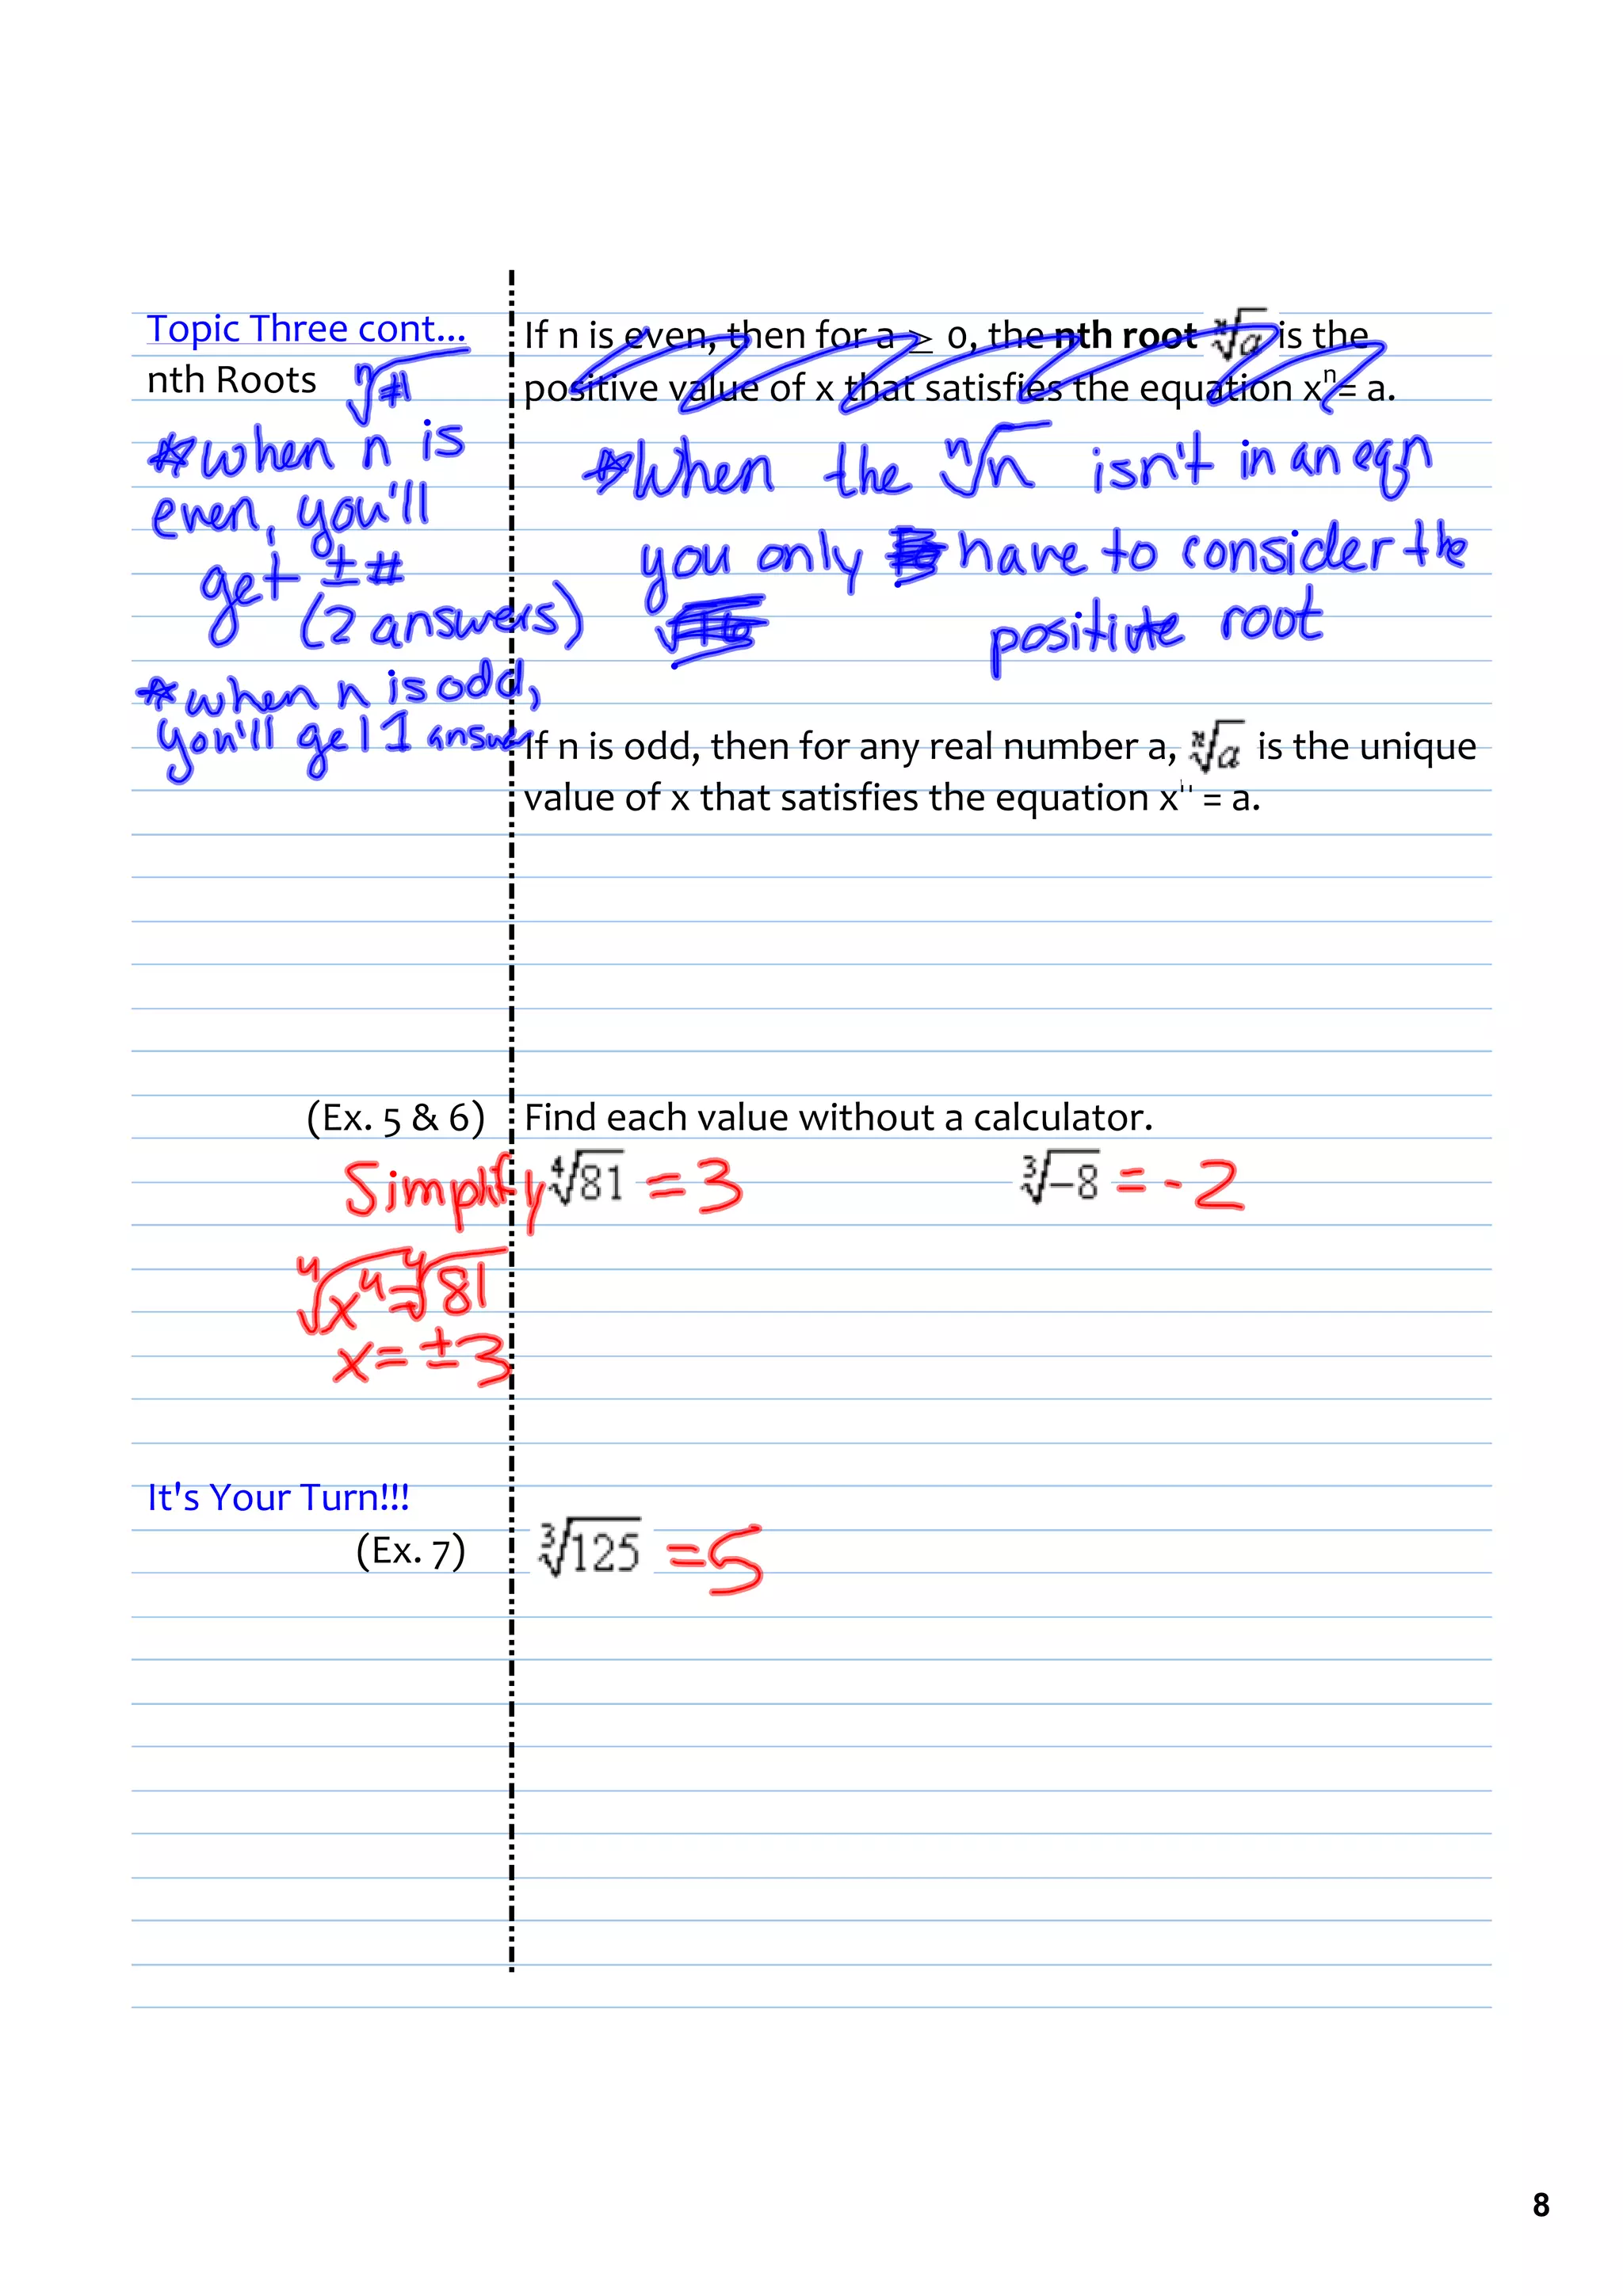 Topic Three cont...
nth Roots ⁿ√#
*when n is
even, you'll
get ±#
(2 answers)
*when n is odd,
you'll get 1 answer
If n is even, then for a ≥ 0, the nth root ⁿ√a is the
positive value of x that satisfies the equation xⁿ = a.
*When the ⁿ√n isn't in an eqn
you only have to consider the
positive root
If n is odd, then for any real number a, ⁿ√a is the unique
value of x that satisfies the equation xⁿ = a.
(Ex. 5 & 6) Find each value without a calculator.
Simplify ⁴√81 = 3 ³√-8 = -2
⁴√x⁴ = ⁴√81
x = ±3
It's Your Turn!!!
(Ex. 7) ³√125 = 5
8